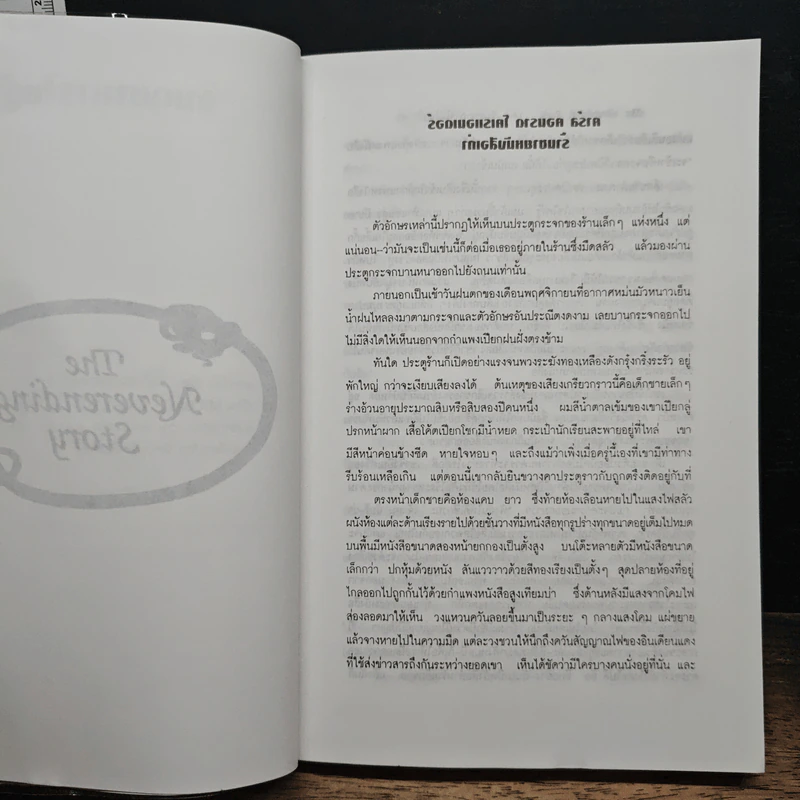 The
Neverending
Story
คาร์ล คอนราด โคเรแอนเดอร์
ร้านขายหนังสือเก่า
ตัวอักษรเหล่านี้ปรากฏให้เห็นบนประตูกระจกของร้านเล็กๆ แห่งหนึ่ง แต่
แน่นอน--ว่ามันจะเป็นเช่นนี้ก็ต่อเมื่อเธออยู่ภายในร้านซึ่งมืดสลัว แล้วมองผ่าน
ประตูกระจกบานหนาออกไปยังถนนเท่านั้น
ภายนอกเป็นเช้าวันฝนตกของเดือนพฤศจิกายนที่อากาศหม่นมัวหนาวเย็น
น้ำฝนไหลลงมาตามกระจกและตัวอักษรอันประณีตงดงาม เลยบานกระจกออกไป
ไม่มีสิ่งใดให้เห็นนอกจากกำแพงเปียกฝนฝั่งตรงข้าม
ทันใด ประตูร้านก็เปิดอย่างแรงจนพวงระฆังทองเหลืองดังกรุ้งกริ้งระรัว อยู่
พักใหญ่ กว่าจะเงียบเสียงลงได้ ต้นเหตุของเสียงเกรียวกราวนี้คือเด็กชายเล็กๆ
ร่างอ้วนอายุประมาณสิบหรือสิบสองปีคนหนึ่ง ผมสีน้ำตาลเข้มของเขาเปียกลู่
ปรกหน้าผาก เสื้อโค้ตเปียกโชกมีน้ำหยด กระเป๋านักเรียนสะพายอยู่ที่ไหล่ เขา
มีสีหน้าค่อนข้างซีด หายใจหอบๆ และถึงแม้ว่าเพิ่งเมื่อครู่นี้เองที่เขามีท่าทาง
รีบร้อนเหลือเกิน แต่ตอนนี้เขากลับยืนขวางคาประตูราวกับถูกตรึงติดอยู่กับที่
ตรงหน้าเด็กชายคือห้องแคบ ยาว ซึ่งท้ายห้องเลือนหายไปในแสงไฟสลัว
ผนังห้องแต่ละด้านเรียงรายไปด้วยชั้นวางที่มีหนังสือทุกรูปร่างทุกขนาดอยู่เต็มไปหมด
บนพื้นมีหนังสือขนาดสองหน้ายกกองเป็นตั้งสูง บนโต๊ะหลายตัวมีหนังสือขนาด
เล็กกว่า ปกหุ้มด้วยหนัง สันแวววาวด้วยสีทองเรียงเป็นตั้งๆ สุดปลายห้องที่อยู่
ไกลออกไปถูกกั้นไว้ด้วยกำแพงหนังสือสูงเทียมบ่า ซึ่งด้านหลังมีแสงจากโคมไฟ
ส่องลอดมาให้เห็น วงแหวนควันลอยขึ้นมาเป็นระยะ ๆ กลางแสงโคม แผ่ขยาย
แล้วจางหายไปในความมืด แต่ละวงชวนให้นึกถึงควันสัญญาณไฟของอินเดียนแดง
ที่ใช้ส่งข่าวสารถึงกันระหว่างยอดเขา เห็นได้ชัดว่ามีใครบางคนนั่งอยู่ที่นั่น และ